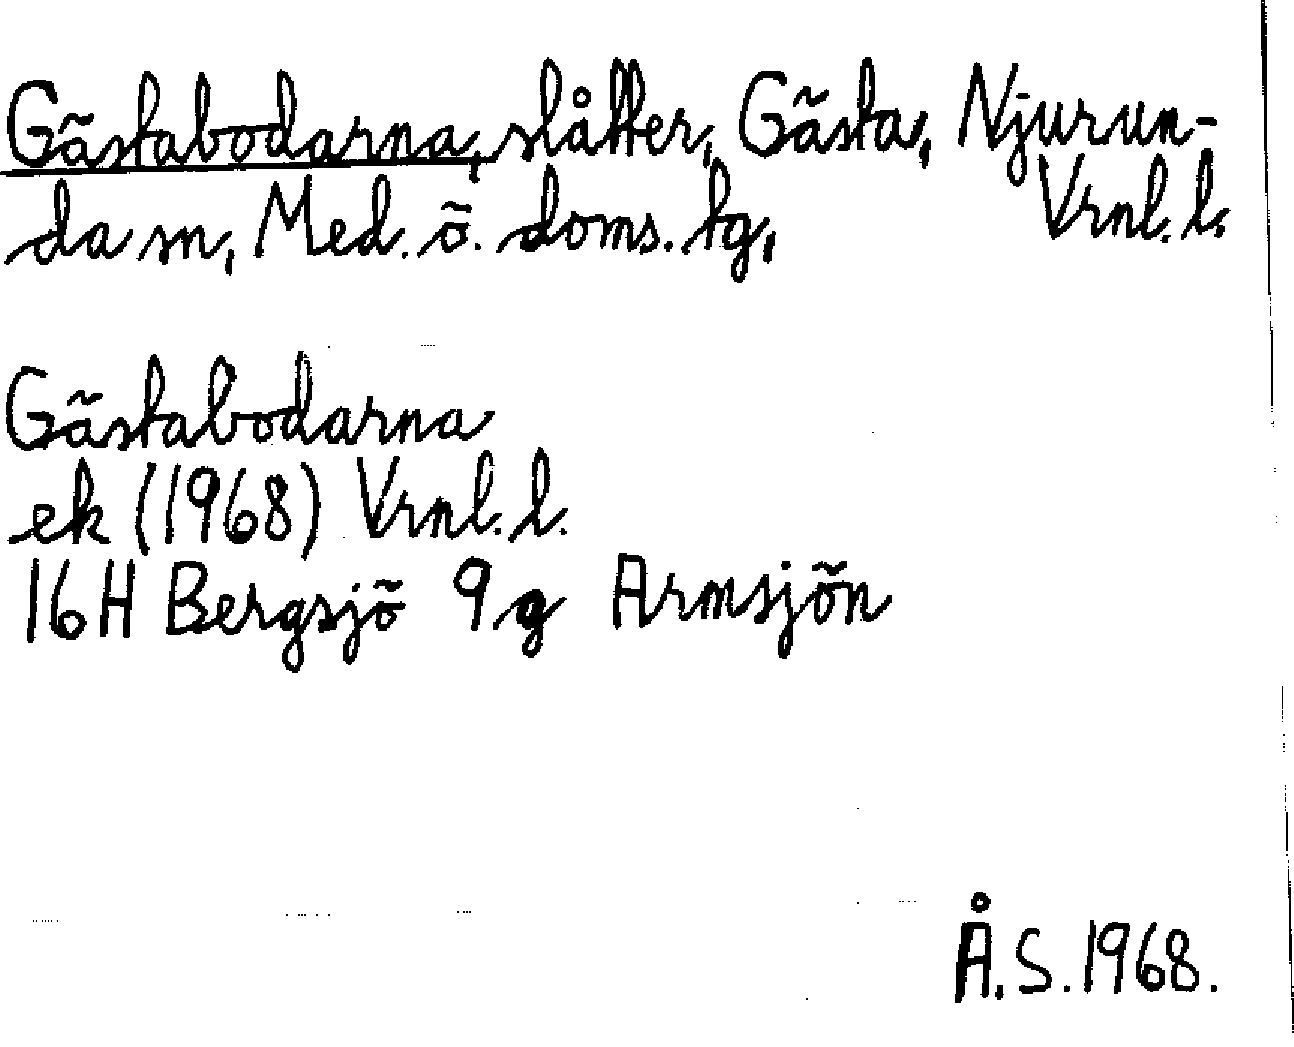 Gästabodarna, slåtter, Gästa, Njurun-
da sn, Med. ö. doms. tg, Vrnl. l.
Gästabodarna
ek (1968) Vrnl. l.
16H Bergsjö 9g Armsjön
Å.S. 1968.